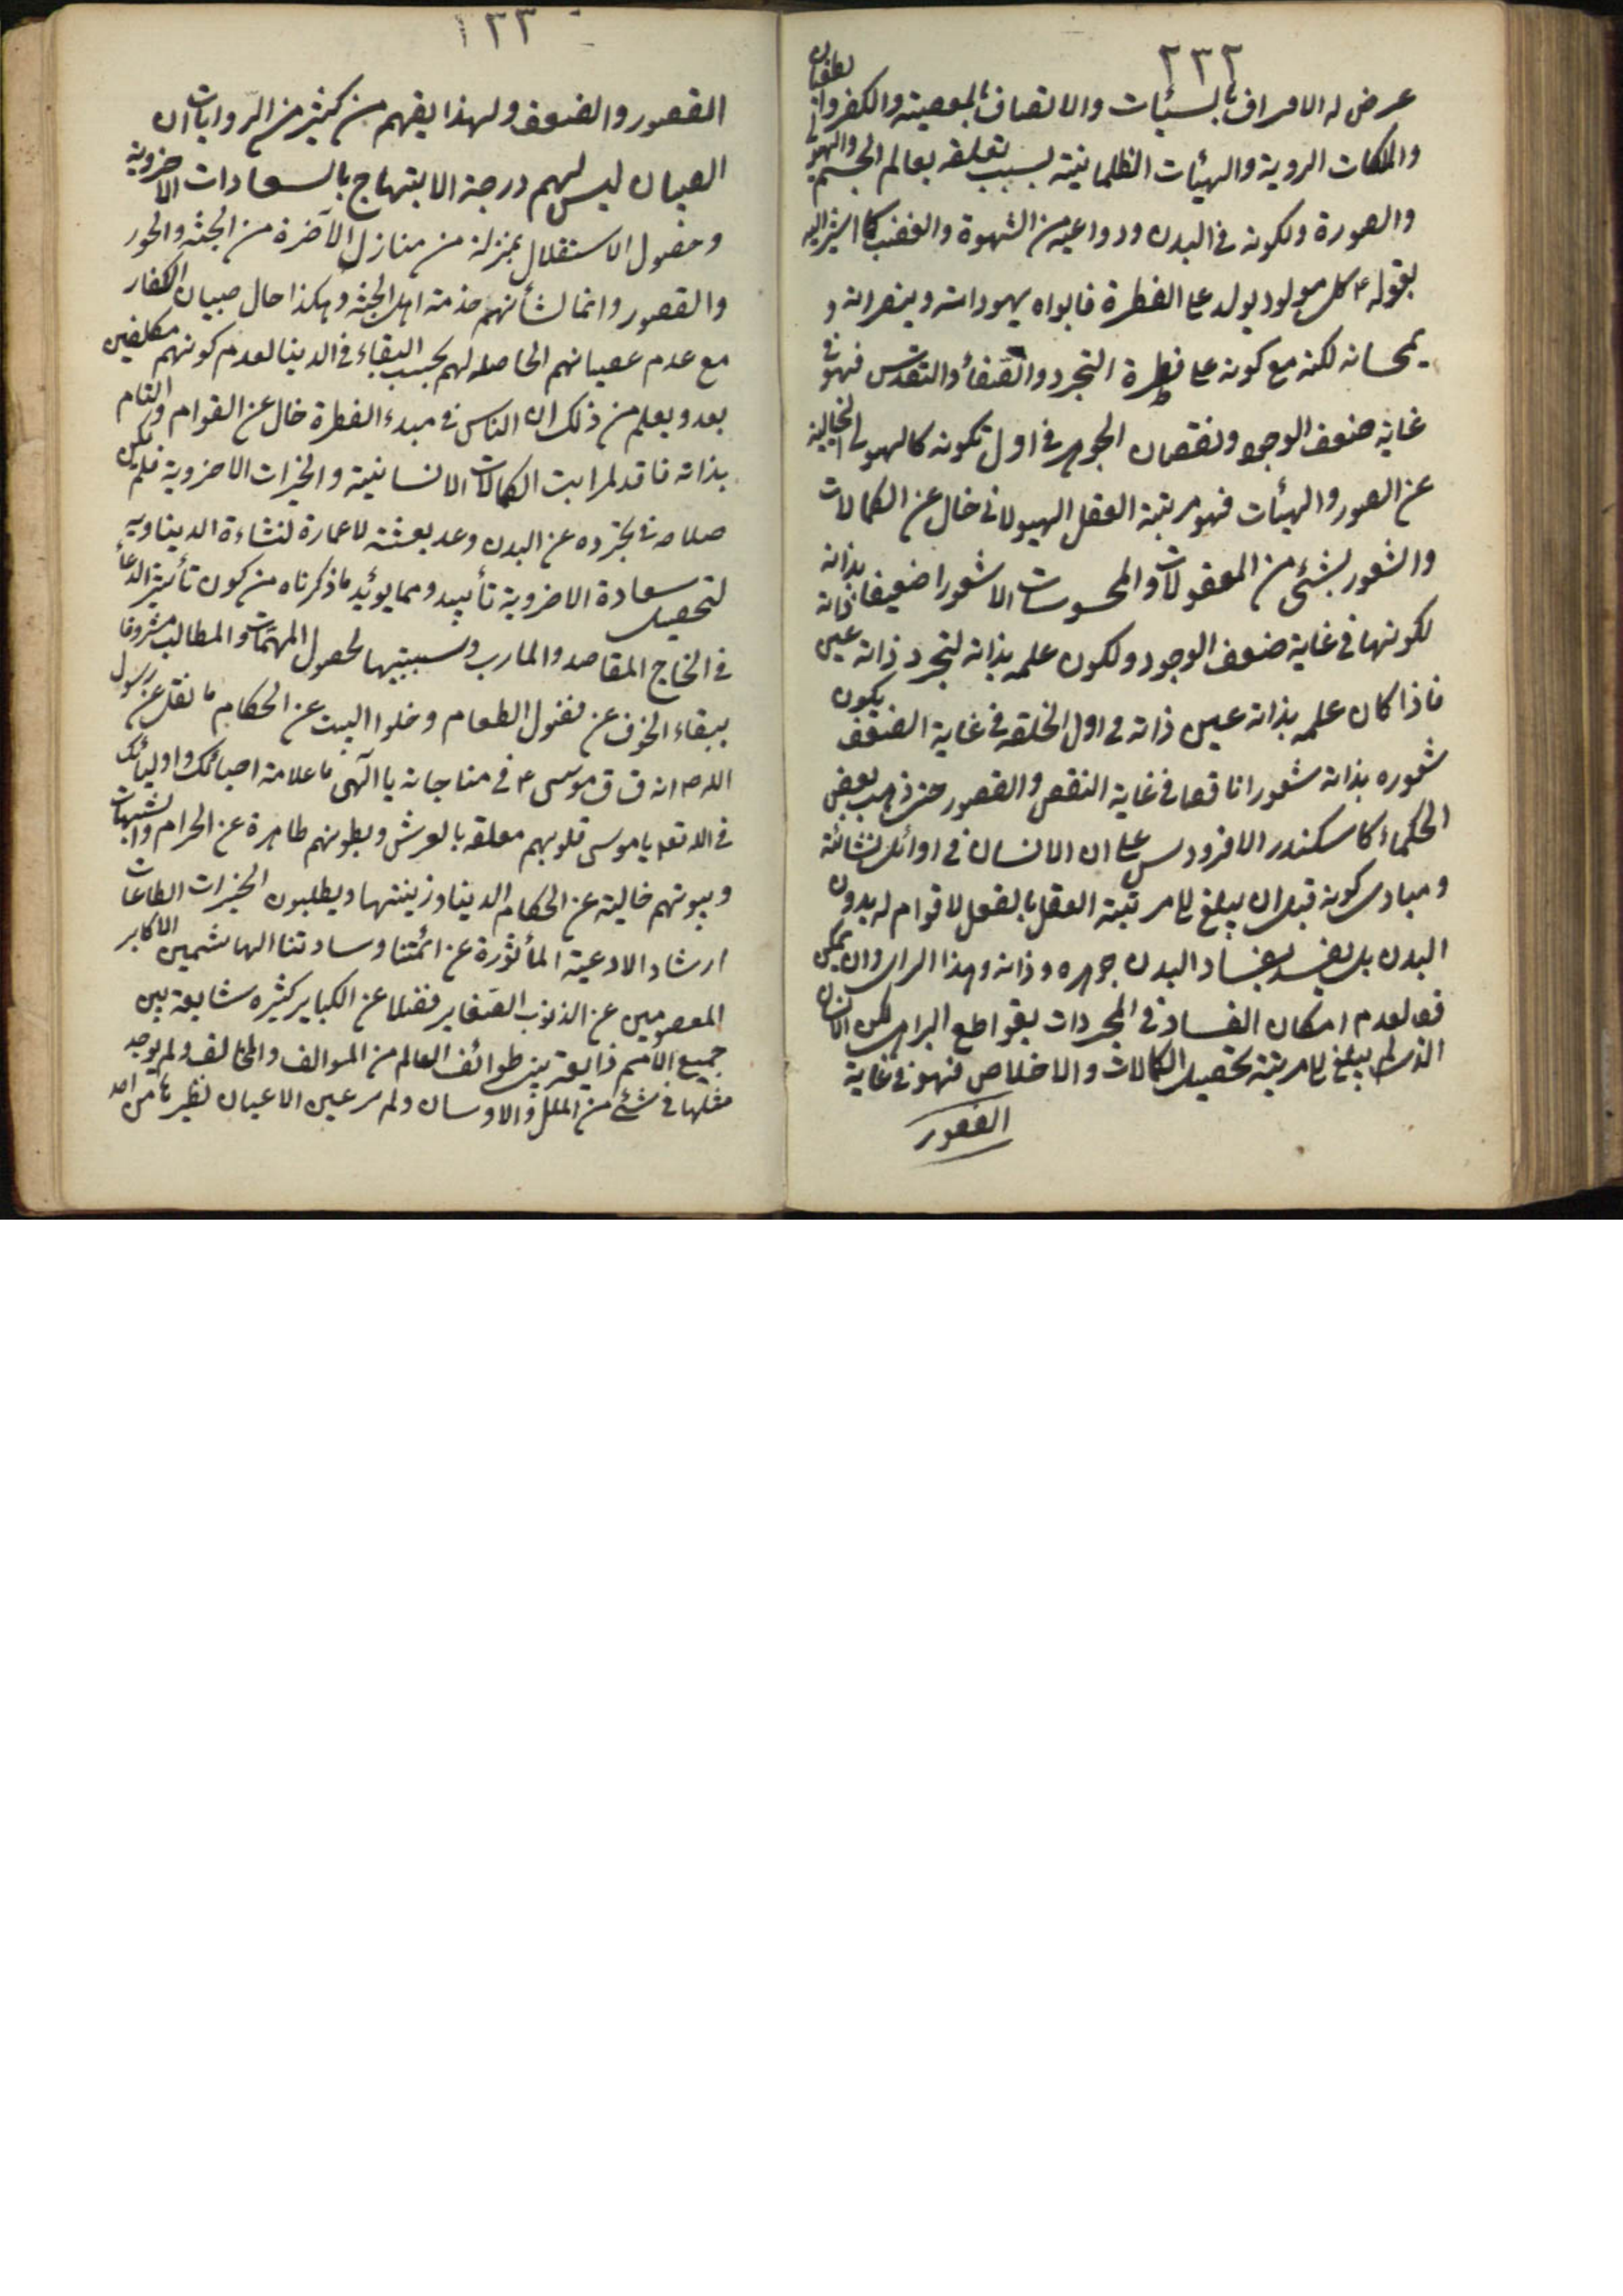 ٢٣٢
عرض له الاسراف بالسيئات والاتصاف بالمعصية والكفر والطغيان
والملكات الردية والهيئات الظلمانية بسبب تعلقه بعالم الجسم والهيولى
والصورة ولكونه في البدن ودواعيه من الشهوة والغضب كما اشير اليه
بقوله ع كل مولود يولد على الفطرة فابواه يهودانه وينصرانه و
يمجسانه لكنه مع كونه على فطرة التجرد والصفاء والتقدس فهو في
غاية ضعف الوجود ونقصان الجوهر في اول تكونه كالهيولى الخالية
عن الصور والهيئات فهو مرتبة العقل الهيولاني خال عن الكمالات
والشعور بشئ من المعقولات والمحسوسات الا شعورا ضعيفا بذاته
لكونها في غاية ضعف الوجود ولكون علمه بذاته لتجرد ذاته عين ذاته
فاذا كان علمه بذاته عين ذاته في اول الخلقه في غاية الضعف يكون
شعوره بذاته شعورا ناقصا في غاية النقص والقصور حتى ذهب بعض
الحكماء كاسكندر الافرودسي على ان الانسان في اوائل نشأته
ومبادى كونه قبل ان يبلغ الى مرتبة العقل بالفعل لا قوام له بدون
البدن بل يفسد بفساد البدن جوهره وذاته وهذا الراى وان يمكن
فعا لعدم امكان الفساد في المجردات بقواطع البراهين لكن الانسان
الذى لم يبلغ الى مرتبة تحصيل الكمالات والاخلاص فهو في غاية
القصور
١٣٣
القصور والضعف ولهذا يفهم من كثير من الروايات ان
الصبيان ليس لهم درجة الابتهاج بالسعادات الاخروية
وحصول الاستقلال بمنزلة من منازل الآخرة من الجنة والحور
والقصور وانما لشأنهم خدمة اهل الجنة وهكذا حال صبيان الكفار
مع عدم عصيانهم الحاصله لهم بحسب البقاء في الدنيا لعدم كونهم مكلفين
بعد ويعلم من ذلك ان الناس في مبدء الفطرة خال عن القوام والتام
بذاته فاقد لمراتب الكمالات الانسانية والخيرات الاخروية فلم يكن
صلاحه في تجرده عن البدن وعد بعثته لاعمارة لنشاءة الديناويه
لتحصيل سعادة الاخروية تأييد ومما يوئيد ما ذكرناه من كون تأثير الدعاء
في انحاج المقاصد والمارب وسببيتها لحصول المهمات والمطالب مشروطا
ببقاء الجوف عن فضول الطعام وخلوا البيت عن الحكام ما نقل عن رسول
الله ص انه ق ق موسى ع في مناجاته يا آلهى ما علامة احبائك واوليائك
ق الله تعه يا موسى قلوبهم معلقه بالعرش وبطونهم طاهرة عن الحرام والشبهات
وبيوتهم خالية عن الحكام الدينا وزينتها ويطلبون الخيرات الطاعات
ارشاد الادعية المأثورة عن ائمتنا وسادتنا الهاشميين الاكابر
المعصومين عن الذنوب الصغاير فضلا عن الكباير كثيره شايعة بين
جميع الامم ذايعة بين طوائف العالم من الموالف والمخالف ولم يوجد
مثلها في شئ من الملل والاوسان ولم ير عين الاعيان نظيرها من احد